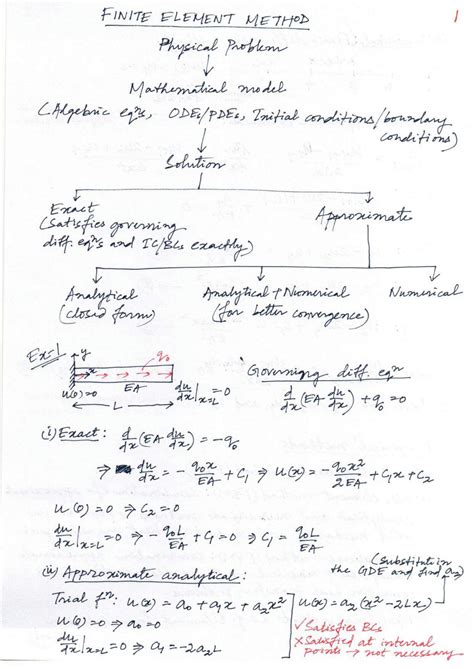 FINITE ELEMENT METHOD
1
Physical Problem
Mathematical model
(Algebric eqⁿs, ODEs/PDEs, Initial conditions/boundary
conditions)
Solution
Exact
(Satisfies governing
diff. eqⁿs and IC/BCs exactly)
Approximate
Analytical
(closed form)
Analytical + Numerical
(for better convergence)
Numerical
Ex-1
y
q₀
x
EA
u(0)=0
du/dx|x=L = 0
L
Governing diff. eqⁿ
d/dx(EA du/dx) + q₀ = 0
(i) Exact: d/dx(EA du/dx) = -q₀
⇒ du/dx = - q₀x/EA + C₁ ⇒ u(x) = - q₀x²/2EA + C₁x + C₂
u(0) = 0 ⇒ C₂ = 0
du/dx|x=L = 0 ⇒ - q₀L/EA + C₁ = 0 ⇒ C₁ = q₀L/EA
(ii) Approximate analytical:
(substitute in
the GDE and find a₂)
Trial fⁿ: u(x) = a₀ + a₁x + a₂x²
u(x) = a₂(x² - 2Lx)
u(0) = 0 ⇒ a₀ = 0
du/dx|x=L = 0 ⇒ a₁ = -2a₂L
✓ Satisfies BCs
✗ Satisfied at internal
points → not necessary